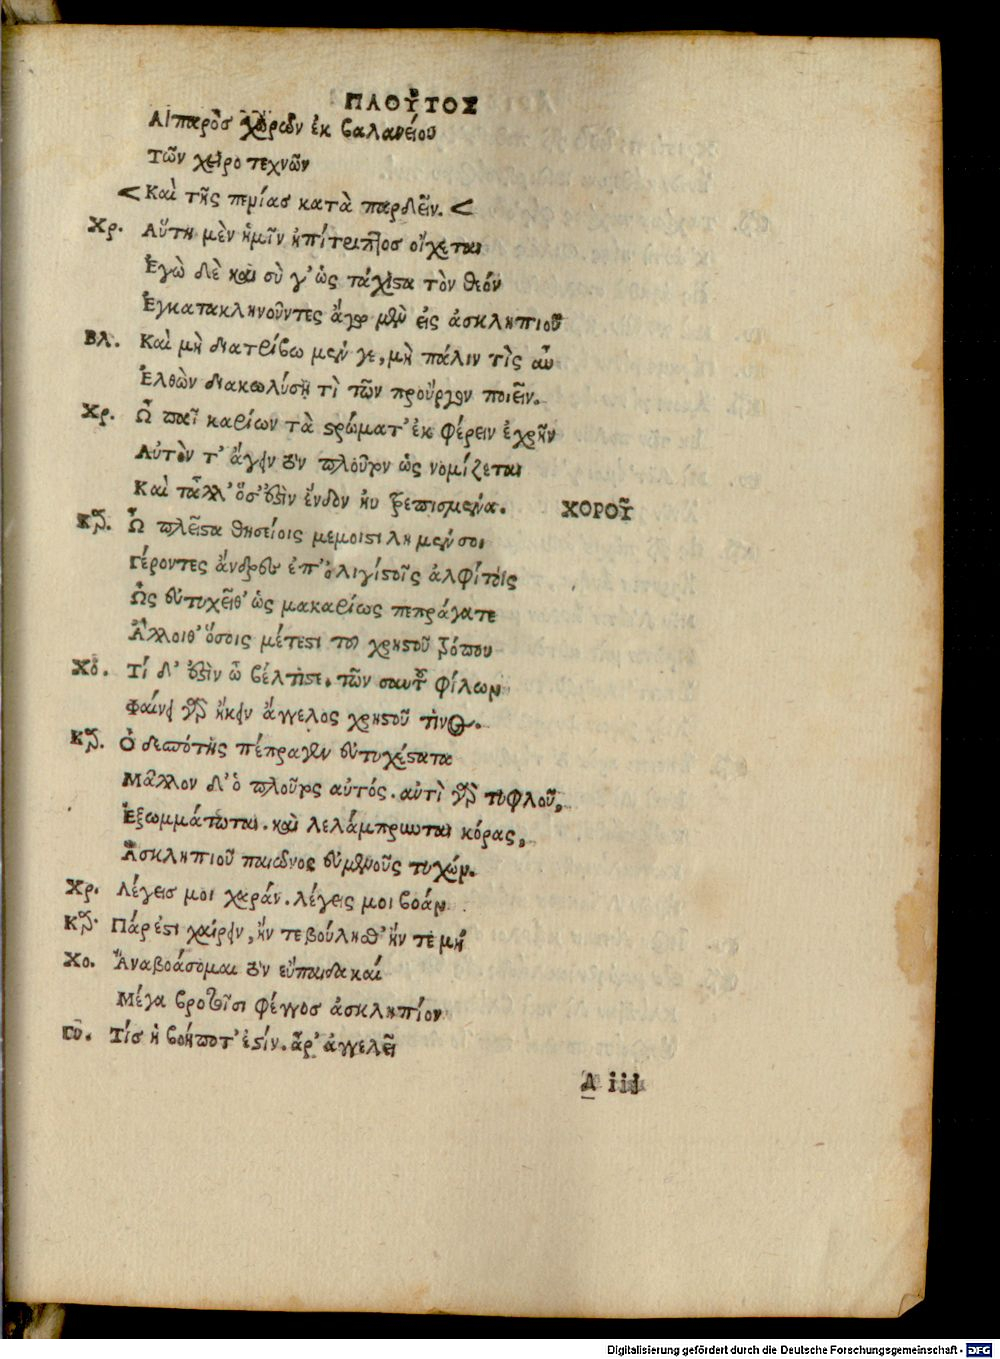 ΠΛΟΥ͂ΤΟΣ
Λιπαρὸσ χωρῶν ἐκ βαλανείου
Τῶν χειρο τεχνῶν
< Καὶ τῆς πενίασ κατὰ παρδεῖν. <
Χρ. Αὕτη μὲν ἡμῖν ἡπίτριπτοσ οἴχεται
Ἐγὼ δὲ καὶ σὺ γ' ὡς τάχιστα τὸν θεόν
Ἐγκατακλινοῦντες ἄγωμεν εἰς ἀσκληπιοῦ
Βλ. Καὶ μὴ διατρίβω μεν γε, μὴ πάλιν τὶς αὖ
Ἐλθὼν διακωλύσῃ τὶ τῶν προὔργου ποιεῖν.
Χρ. Ὦ παῖ καρίων τὰ στρώματ' ἐκ φέρειν ἐχρῆν
Αὐτὸν τ' ἄγειν τὸν πλοῦτον ὡς νομίζεται
Καὶ τἄλλ' ὅσ' ἐστὶν ἔνδον ηυ τρεπισμένα. ΧΟΡΟΥ͂
Κα. Ὦ πλεῖστα θησείοις μεμυστι λη μένοι
Γέροντες ἄνδρες ἐπ' ὀλιγίστοις ἀλφίτοις
Ὡς εὐτυχεῖθ' ὡς μακαρίως πεπράγατε
Ἄλλοιθ' ὅσοις μέτεστι τοῦ χρηστοῦ τρόπου
Χο. Τί δ' ἐστὶν ὦ βέλτιστε. τῶν σαυτοῦ φίλων
Φαίνει γὰρ ἥκειν ἄγγελος χρηστοῦ τινος.
Κα. Ὁ δεσπότης πέπραγεν εὐτυχέστατα
Μᾶλλον δ' ὁ πλοῦτος αὐτός. αντὶ γὰρ τυφλοῦ,
Ἐξωμμάτωται. καὶ λελάμπρυνται κόρας,
Ἀσκληπιοῦ παιῶνος εὐμενοῦς τυχών.
Χρ. Λέγεισ μοι χαράν. λέγεις μοι βοάν
Κα. Πάρεστι χαίρειν, ἤν τε βούλησθ' ἤν τε μή
Χο. Ἀναβοάσομαι τὸν εὔπαιδα καί
Μέγα βροτοῖσι φέγγοσ ἀσκληπίον
Γυ. Τίσ ἡ βοήποτ' ἐστίν. ἆρ' ἀγγελεῖ
Δ iii
Digitalisierung gefördert durch die Deutsche Forschungsgemeinschaft - DFG